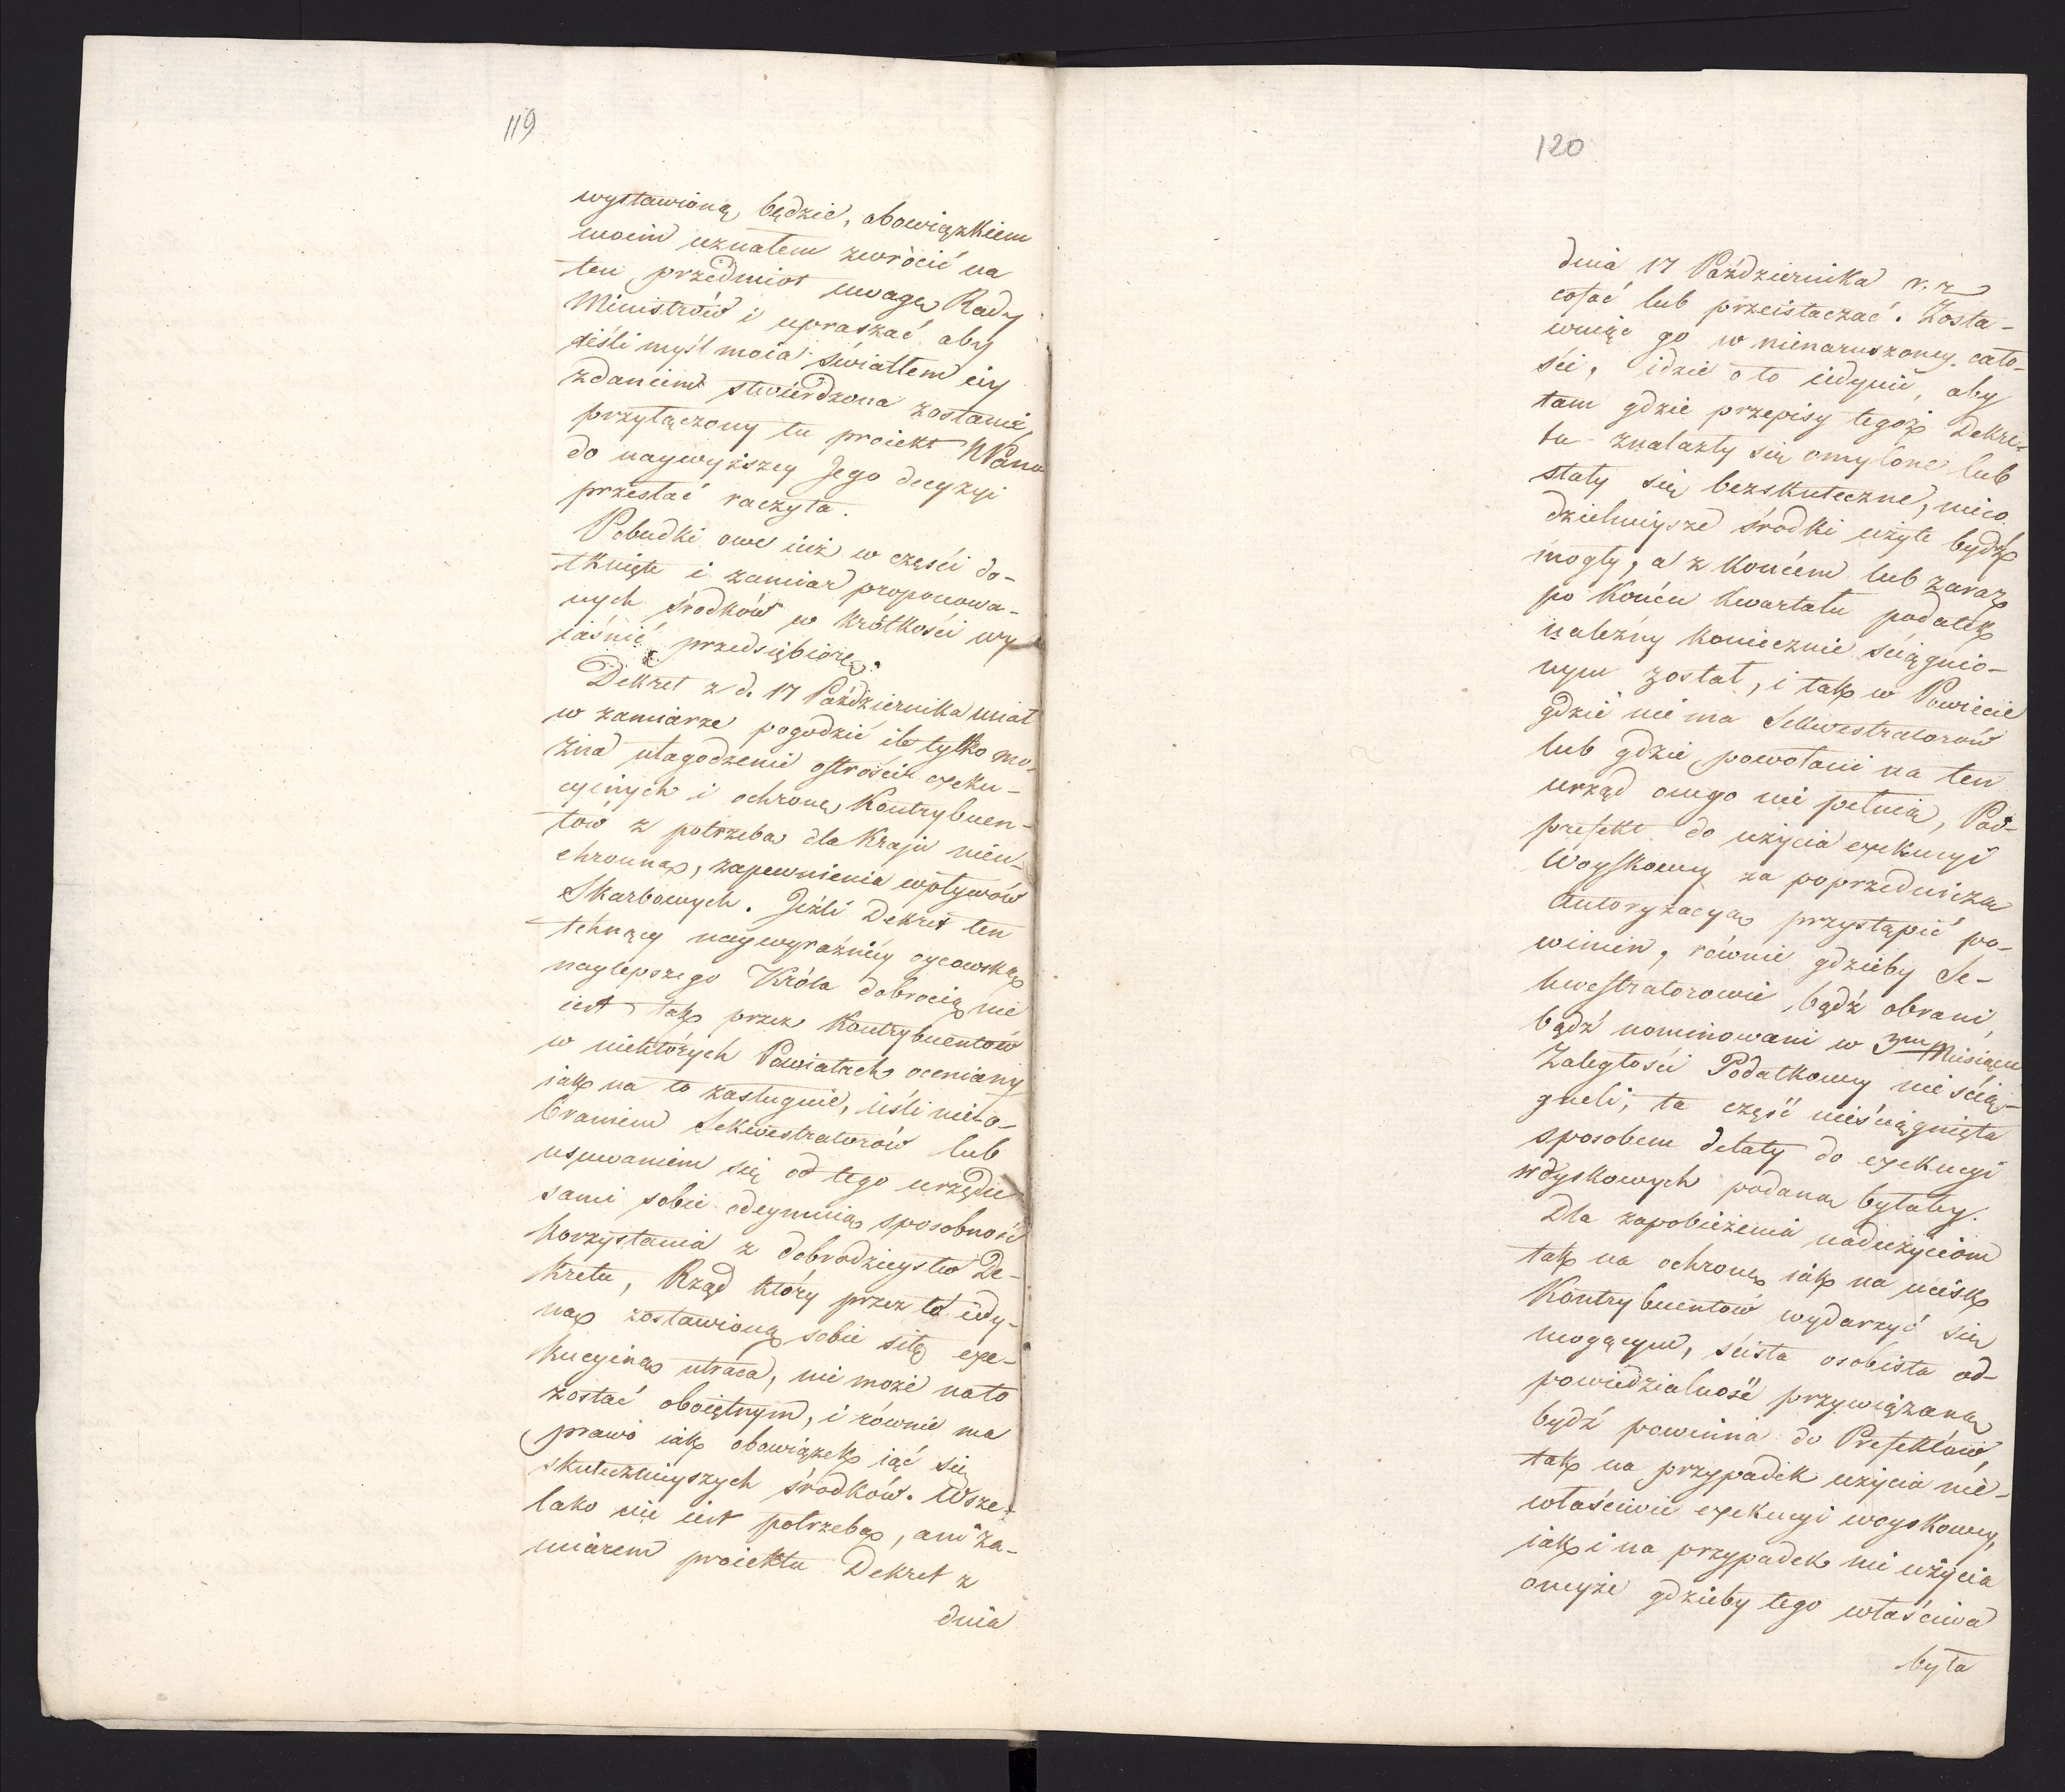 119
wystawioną będzie, obowiązkiem
moim uznałem zwrócić na
ten przedmiot uwagę Rady
Ministrów i upraszać aby
jeśli myśl moia światłem iey
zdaniem stwierdzona zostanie,
przyłączony tu proiekt NPanu
do naywyższey Jego decyzyi
przesłać raczyła.
Pobudki owe iuż w części do-
tknięte i zamiar proponowa-
nych środków w krótkości wy
iaśnić przedsiębiorę.
Dekret z d. 17 Października miał
w zamiarze pogodzić ile tylko mo-
żna ułagodzenie ostrości exeku-
cyinych i ochronę Kontrybuen-
tów z potrzebą dla Kraju nieu-
chronną, zapewnienia wpływów
Skarbowych. Jeźli Dekret ten
tchnący naywyraźniey oycowską
naylepszego Króla dobrocią nie
iest tak przez Kontrybuentów
w niektórych Powiatach oceniany
iak na to zasługuie, ieśli nieo-
braniem Sekwestratorów lub
usuwaniem się od tego urzędu
sami sobie odeymuią sposobność
korzystania z dobrodzieystw De-
kretu, Rząd który przez to iedy-
ną zostawioną sobie siłę exe-
kucyiną utraca, nie może na to
zostać oboiętnym, i równie ma
prawo iak obowiązek iąć się
skutecznieyszych środków. Wsze-
lako nie iest potrzebą, ani za-
miarem proiektu Dekret z
dnia
120
dnia 17 Października r. z
cofać lub przeistaczać. Zosta-
wuiąc go w nienaruszoney cało-
ści, idzie o to iedynie, aby
tam gdzie przepisy tegoż Dekre-
tu znalazły się omylone lub
stały się bezskuteczne, nieco
dzielnieysze środki użyte bydź
mogły, a z końcem lub zaraz
po końcu kwartału podatek
należny koniecznie ściągnio-
nym został, i tak w Powiecie
gdzie nie ma Sekwestratorów
lub gdzie powołani na ten
urząd onego nie pełnią, Pod-
prefekt do użycia exekucyi
Woyskowey za poprzedniczą
Autoryzacyą przystąpić po-
winien, równie gdzieby Se-
kwestratorowie bądź obrani,
bądź nominowani w 3m Miesiącu
Zaległości Podatkowey nie ścią-
gneli, ta część nieściągnięta
sposobem delaty do exekucyi
woyskowych podaną byłaby.
Dla zapobieżenia nadużyciom
tak na ochronę iak na ucisk
Kontrybuentów wydarzyć się
mogącym, ścisła osobista od-
powiedzialność przywiązaną
bydź powinna do Prefektów,
tak na przypadek użycia nie-
właściwie exekucyi woyskowey,
iak i na przypadek nie użycia
oneyże gdzieby tego właściwa
była